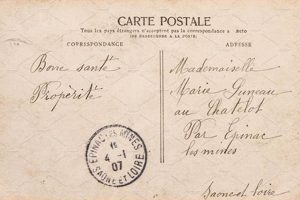 CARTE POSTALE
Tous les pays étrangers n'acceptent pas la correspondance au
CORRESPONDANCE
ADRESSE
Bonne santé
Mademoiselle
Marie
au Chatelot
Par Epinac
les mines
EPINAC-LES-MINES
4 -1
07
SAONE ET LOIRE
Saone et loire